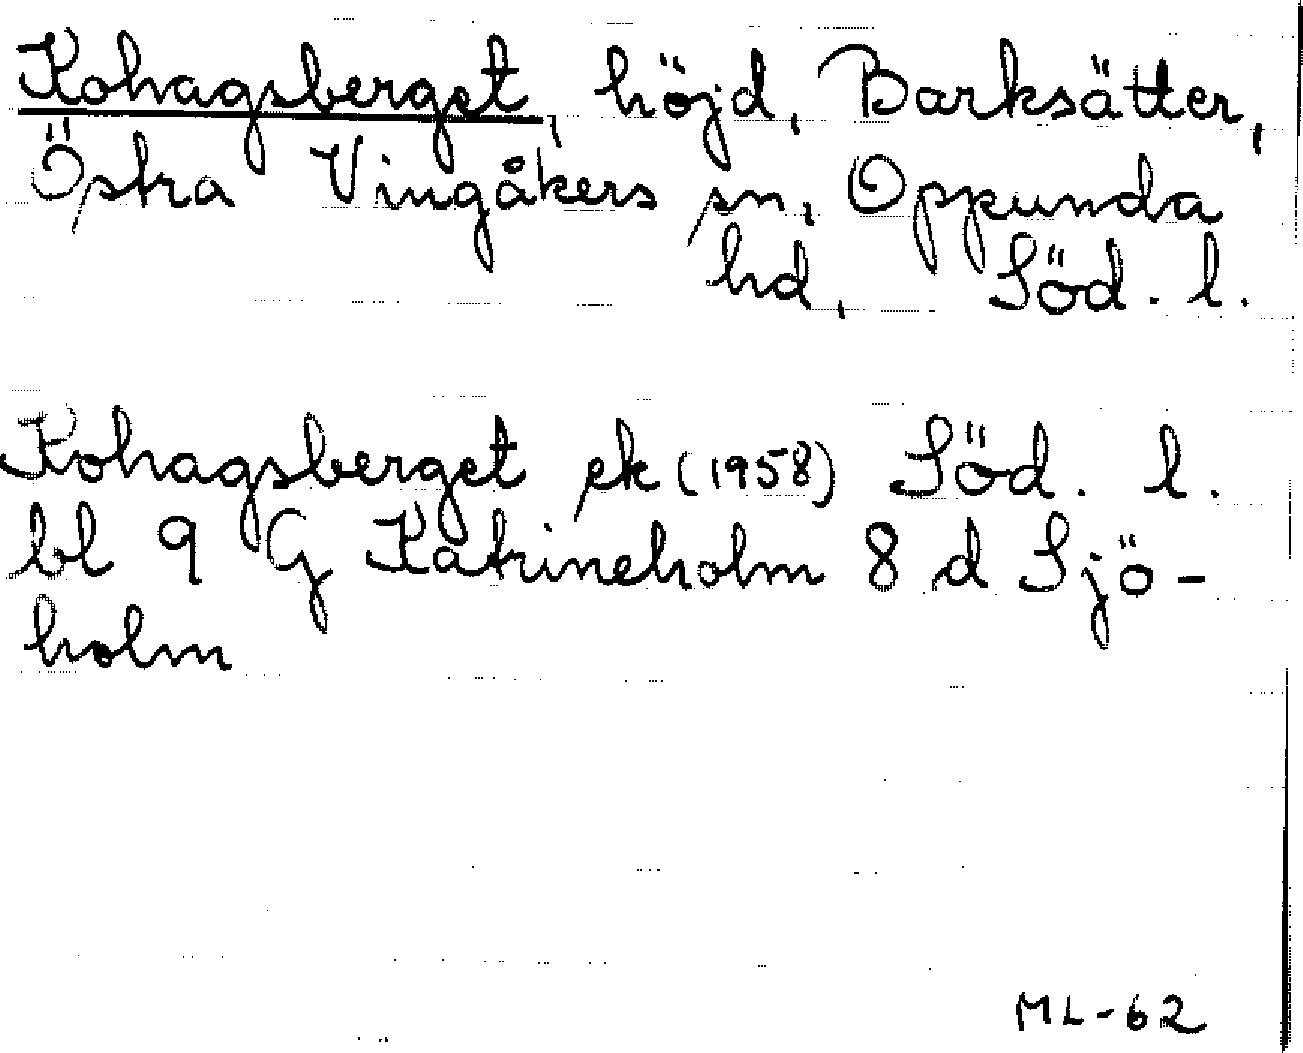 Kohagsberget, höjd, Barksätter,
Östra Vingåkers sn, Oppunda
hd, Söd. l.
Kohagsberget ek (1958) Söd. l.
bl 9 G Katrineholm 8 d Sjö-
holm
ML-62